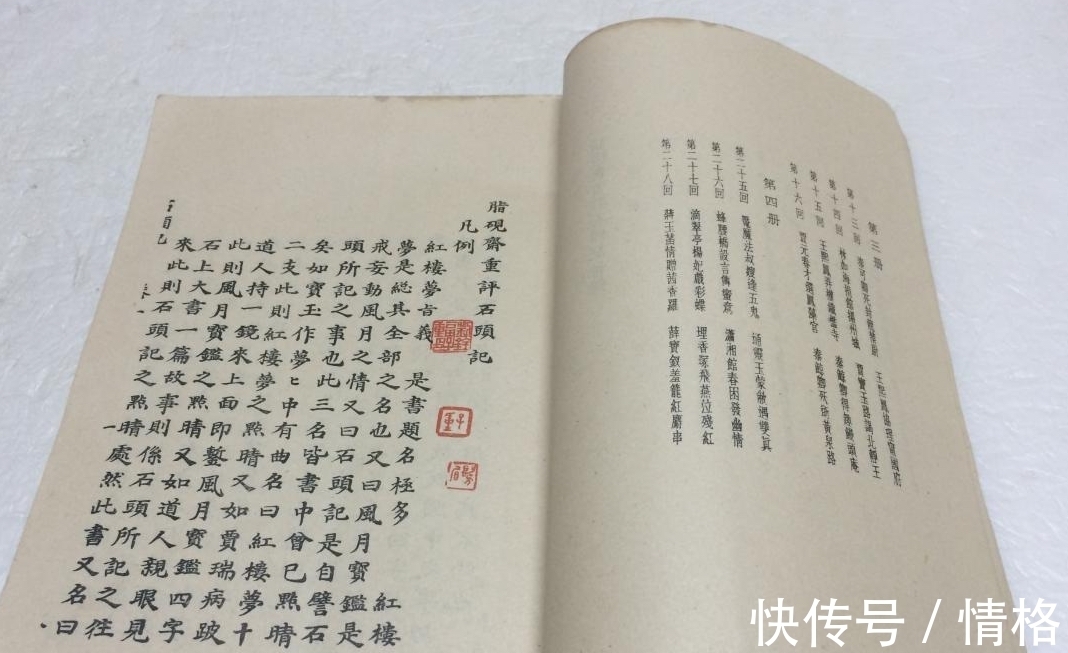 第三册
第十三回 秦可卿死封龍禁尉 王熙鳳協理寧國府
第十四回 林如海捐館揚州城 賈寶玉路謁北靜王
第十五回 王熙鳳弄權鐵檻寺 秦鯨卿得趣饅頭庵
第十六回 賈元春才選鳳藻宮 秦鯨卿夭逝黃泉路
第四册
第二十五回 魘魔法叔嫂逢五鬼 通靈玉蒙敝遇雙真
第二十六回 蜂腰橋設言傳蜜意 瀟湘館春困發幽情
第二十七回 滴翠亭楊妃戲彩蝶 埋香塚飛燕泣殘紅
第二十八回 蔣玉菡情贈茜香羅 薛寶釵羞籠紅麝串
脂硯齋重評石頭記
凡例
紅樓夢旨義 是書題名極多 紅樓
夢是總其全部之名也又曰風月寶鑑是
戒妄動風月之情又曰石頭記是自譬石
頭所記之事也此三名皆書中曾已點睛
矣如寶玉作夢ヒ中有曲名曰紅樓夢十
二支此則紅樓夢之點睛又如賈瑞病跛
道人持一鏡來上面即鏨風月寳鑑四字
此則風月寳鑑之點睛又如道人親眼見
石上大書一篇故事則係石頭所記之往
來此則石頭記之點睛處然此書又名曰
快传号 / 情格